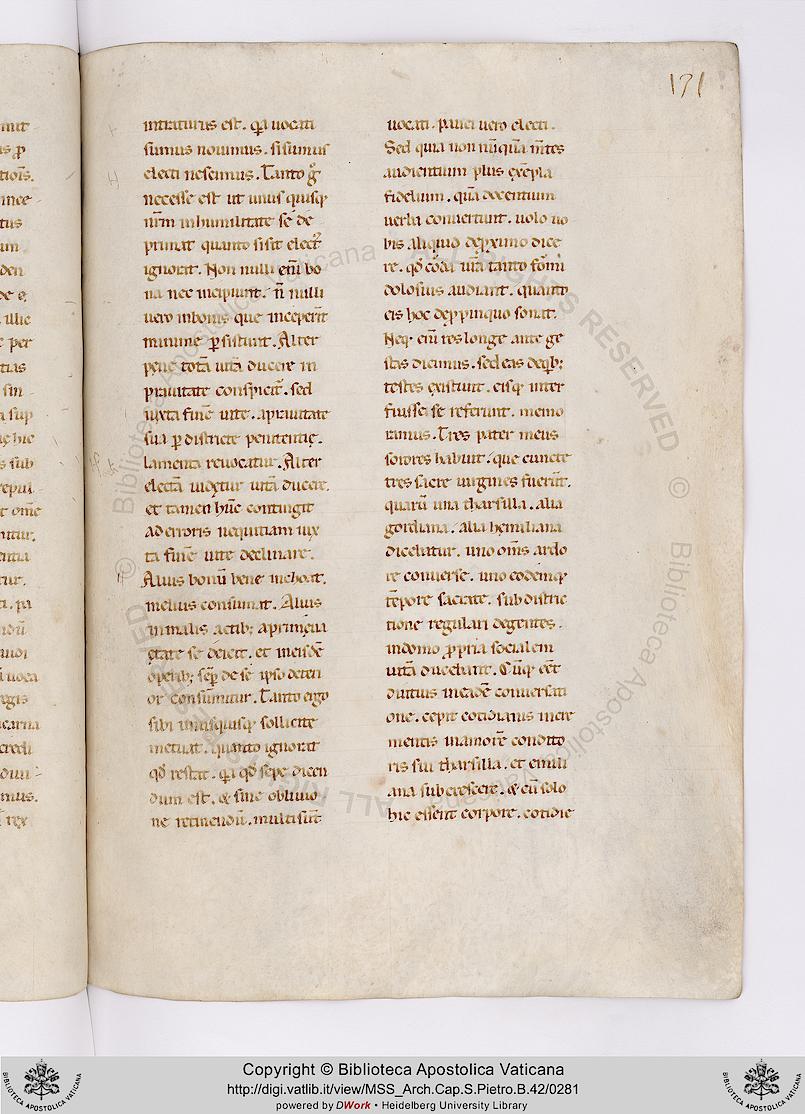 171
intraturus est. q̄a uocati
sumus nouimus. si sumus
electi nescimus. Tanto g̊
necesse est ut unus quisq;
nr̄m in humilitate se de
primat quanto si sit elect᷒
ignorat. Non nulli eni bo
na nec incipiunt. n̄ nulli
uero in bonis que inceperīt
minime ꝑsistunt. Alter
pęne totā uitā ducere in
prauitate conspicit᷒. sed
iuxta finē uite. a prauitate
sua ꝑ districte penitentię.
lamenta reuocatur. Alter
electā uidetur uitā ducere.
et tamen hūc contingit
ad erroris nequitiam iux
ta finē uite declinare.
Alius bonū bene inchoat.
melius consumat. Alius
in malis actib; a primeua
ętate se deicit. et in eisdē
operib; sēp de se ipso deteri
or consūmitur. Tanto ergo
sibi unusquisq; sollicite
metuat. quanto ignorat
qđ restat. q̄a qđ sepe dicen
dum est. & sine obliuio
ne retinendū. multi sūt
uocati. pauci uero electi.
Sed quia non nūquā m̄tes
audientium plus exempla
fidelium. quā docentium
uerba conuertunt. uolo uo
bis aliquid de ꝓximo dice
re. qđ corda ur̄a tanto formi
dolosius audiant. quanto
eis hoc de ꝓpinquo sonat.
Neq; eni res longe ante ge
stas dicimus. sed eas de q̄b;
testes existunt. eisq; inter
fuisse se referunt. memo
ramus. Tres pater meus
sorores habuit. que cuncte
tres sacre uirgines fuerūt.
quarū una tharsilla. alia
gordiana. alia hemiliana
dicebatur. uno om̄s ardo
re conuerse. uno eodemq;
tēpore sacrate. sub distric
tione regulari degentes.
in domo propria socialem
uitā ducebant. Cūq; eēt
diutius in eadē conuersati
one. cepit cotidianis incre
mentis in amorē condito
ris sui tharsilla. et emili
ana subcrescere. & cū solo
hic essent corpore. cotidie
Copyright © Biblioteca Apostolica Vaticana
http://digi.vatlib.it/view/MSS_Arch.Cap.S.Pietro.B.42/0281
powered by DWork • Heidelberg University Library